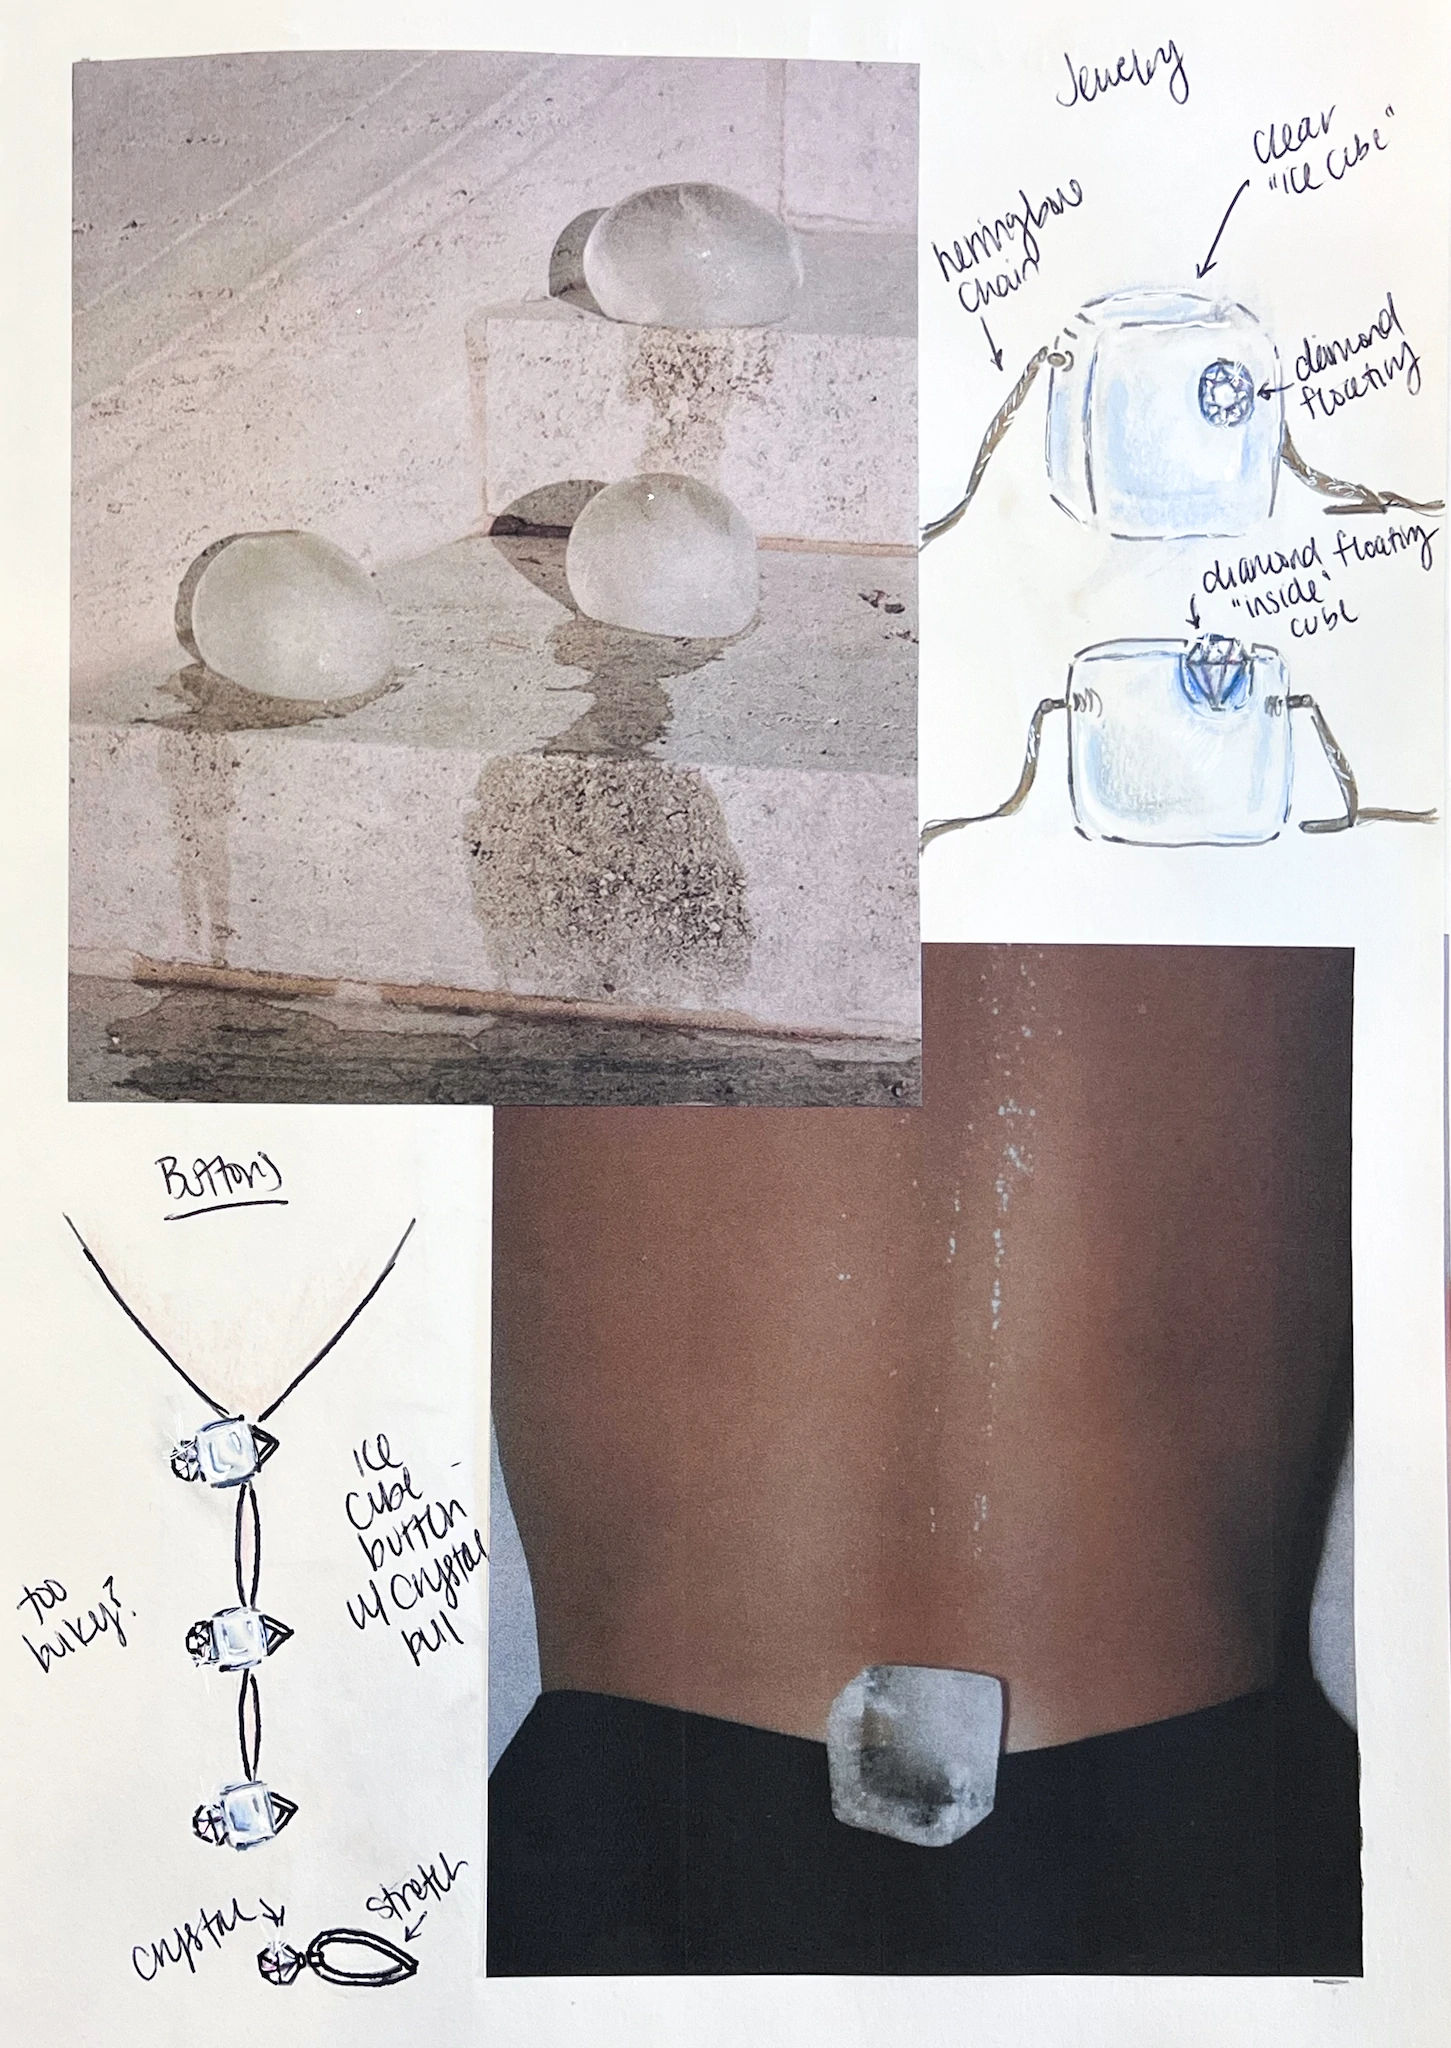 Jewelry
clear
"ice cube"
herringbone
chain
diamond
floating
diamond floating
"inside"
cube
Buttons
ice
cube
button
w/ crystal
pull
too
bulky?
crystal
stretch